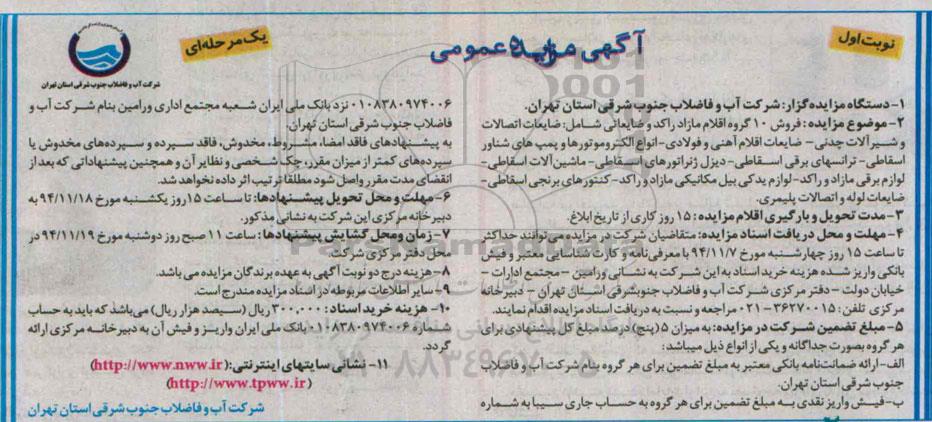 نوبت اول
آگهی مزایده عمومی
یک مرحله‌ای
شرکت آب و فاضلاب جنوب شرقی استان تهران
۱- دستگاه مزایده گزار: شرکت آب و فاضلاب جنوب شرقی استان تهران.
۲- موضوع مزایده: فروش ۱۰ گروه اقلام مازاد راکد و ضایعاتی شامل: ضایعات اتصالات
و شیرآلات چدنی- ضایعات اقلام آهنی و فولادی- انواع الکتروموتورها و پمپ های شناور
اسقاطی- ترانسهای برقی اسقاطی- دیزل ژنراتورهای اسقاطی- ماشین آلات اسقاطی-
لوازم برقی مازاد و راکد- لوازم یدکی بیل مکانیکی مازاد و راکد- کنتورهای برنجی اسقاطی-
ضایعات لوله و اتصالات پلیمری.
۳- مدت تحویل و بارگیری اقلام مزایده: ۱۵ روز کاری از تاریخ ابلاغ.
۴- مهلت و محل دریافت اسناد مزایده: متقاضیان شرکت در مزایده می‌توانند حداکثر
تا ساعت ۱۵ روز چهارشنبه مورخ ۹۴/۱۱/۷ با معرفی‌نامه و کارت شناسایی معتبر و فیش
بانکی واریز شده هزینه خرید اسناد به این شرکت به نشانی ورامین - مجتمع ادارات -
خیابان دولت - دفتر مرکزی شرکت آب و فاضلاب جنوبشرقی استان تهران - دبیرخانه
مرکزی تلفن: ۳۶۲۷۰۰۱۵-۰۲۱ مراجعه و نسبت به دریافت اسناد مزایده اقدام نمایند.
۵- مبلغ تضمین شرکت در مزایده: به میزان ۵ (پنج) درصد مبلغ کل پیشنهادی برای
هر گروه بصورت جداگانه و یکی از انواع ذیل میباشد:
الف- ارائه ضمانت‌نامه بانکی معتبر به مبلغ تضمین برای هر گروه بنام شرکت آب و فاضلاب
جنوب شرقی استان تهران.
ب- فیش واریز نقدی به مبلغ تضمین برای هر گروه به حساب جاری سیبا به شماره
۰۱۰۸۳۸۰۹۷۴۰۰۶ نزد بانک ملی ایران شعبه مجتمع اداری ورامین بنام شرکت آب و
فاضلاب جنوب شرقی استان تهران.
به پیشنهادهای فاقد امضا، مشروط، مخدوش، فاقد سپرده و سپرده‌های مخدوش یا
سپرده‌های کمتر از میزان مقرر، چک شخصی و نظایر آن و همچنین پیشنهاداتی که بعد از
انقضای مدت مقرر واصل شود مطلقا ترتیب اثر داده نخواهد شد.
۶- مهلت و محل تحویل پیشنهادها: تا ساعت ۱۵ روز یکشنبه مورخ ۹۴/۱۱/۱۸ به
دبیرخانه مرکزی این شرکت به نشانی مذکور.
۷- زمان و محل گشایش پیشنهادها: ساعت ۱۱ صبح روز دوشنبه مورخ ۹۴/۱۱/۱۹ در
محل دفتر مرکزی شرکت.
۸- هزینه درج دو نوبت آگهی به عهده برندگان مزایده می باشد.
۹- سایر اطلاعات مربوطه در اسناد مزایده مندرج است.
۱۰- هزینه خرید اسناد: ۳۰۰,۰۰۰ ریال (سیصد هزار ریال) می‌باشد که باید به حساب
شماره ۰۱۰۸۳۸۰۹۷۴۰۰۶ بانک ملی ایران واریز و فیش آن به دبیرخانه مرکزی ارائه
گردد.
۱۱- نشانی سایتهای اینترنتی: (http://www.nww.ir)
(http://www.tpww.ir)
شرکت آب و فاضلاب جنوب شرقی استان تهران
ParsNamadData